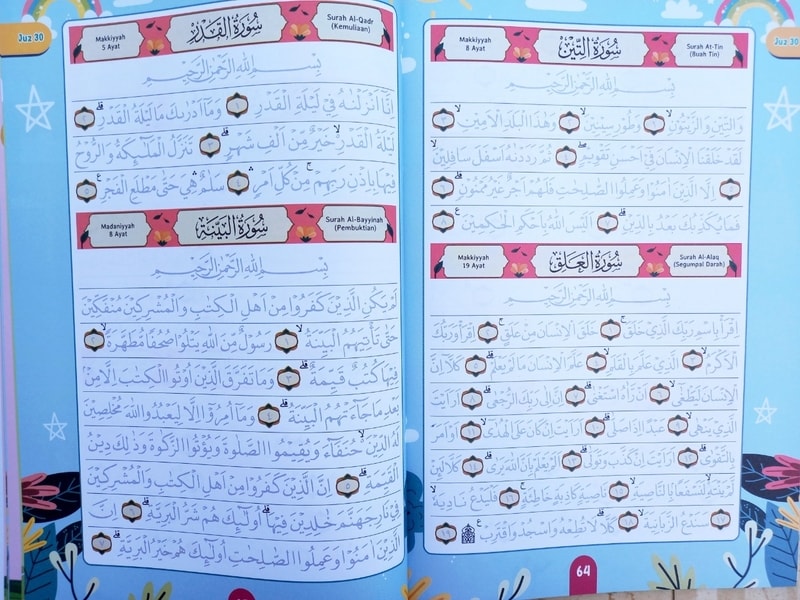 Juz 30
Makkiyyah
8 Ayat
سُورَةُ التِّيْنِ
Surah At-Tin
(Buah Tin)
بِسْمِ اللّٰهِ الرَّحْمٰنِ الرَّحِيْمِ
وَالتِّيْنِ وَالزَّيْتُوْنِۙ ١ وَطُوْرِ سِيْنِيْنَۙ ٢ وَهٰذَا الْبَلَدِ الْاَمِيْنِۙ ٣
لَقَدْ خَلَقْنَا الْاِنْسَانَ فِيْٓ اَحْسَنِ تَقْوِيْمٍۖ ٤ ثُمَّ رَدَدْنٰهُ اَسْفَلَ سَافِلِيْنَۙ
٥ اِلَّا الَّذِيْنَ اٰمَنُوْا وَعَمِلُوا الصّٰلِحٰتِ فَلَهُمْ اَجْرٌ غَيْرُ مَمْنُوْنٍۗ ٦
فَمَا يُكَذِّبُكَ بَعْدُ بِالدِّيْنِۗ ٧ اَلَيْسَ اللّٰهُ بِاَحْكَمِ الْحٰكِمِيْنَ ٨
Makkiyyah
19 Ayat
سُورَةُ الْعَلَقِ
Surah Al-Alaq
(Segumpal Darah)
بِسْمِ اللّٰهِ الرَّحْمٰنِ الرَّحِيْمِ
اِقْرَأْ بِاسْمِ رَبِّكَ الَّذِيْ خَلَقَۚ ١ خَلَقَ الْاِنْسَانَ مِنْ عَلَقٍۚ ٢ اِقْرَأْ وَرَبُّكَ
الْاَكْرَمُۙ ٣ الَّذِيْ عَلَّمَ بِالْقَلَمِۙ ٤ عَلَّمَ الْاِنْسَانَ مَا لَمْ يَعْلَمْۗ ٥ كَلَّآ اِنَّ
الْاِنْسَانَ لَيَطْغٰىٓۙ ٦ اَنْ رَّاٰهُ اسْتَغْنٰىۗ ٧ اِنَّ اِلٰى رَبِّكَ الرُّجْعٰىۗ ٨ اَرَاَيْتَ
الَّذِيْ يَنْهٰىۙ ٩ عَبْدًا اِذَا صَلّٰىۗ ١٠ اَرَاَيْتَ اِنْ كَانَ عَلَى الْهُدٰىٓۙ ١١ اَوْ اَمَرَ
بِالتَّقْوٰىۗ ١٢ اَرَاَيْتَ اِنْ كَذَّبَ وَتَوَلّٰىۗ ١٣ اَلَمْ يَعْلَمْ بِاَنَّ اللّٰهَ يَرٰىۗ ١٤ كَلَّا لَىِٕنْ
لَّمْ يَنْتَهِ ەۙ لَنَسْفَعًاۢ بِالنَّاصِيَةِۙ ١٥ نَاصِيَةٍ كَاذِبَةٍ خَاطِئَةٍۚ ١٦ فَلْيَدْعُ نَادِيَهٗۙ
١٧ سَنَدْعُ الزَّبَانِيَةَۙ ١٨ كَلَّاۗ لَا تُطِعْهُ وَاسْجُدْ وَاقْتَرِبْ ١٩
64
Juz 30
Makkiyyah
5 Ayat
سُورَةُ الْقَدْرِ
Surah Al-Qadr
(Kemuliaan)
بِسْمِ اللّٰهِ الرَّحْمٰنِ الرَّحِيْمِ
اِنَّآ اَنْزَلْنٰهُ فِيْ لَيْلَةِ الْقَدْرِ ١ وَمَآ اَدْرٰىكَ مَا لَيْلَةُ الْقَدْرِۗ ٢
لَيْلَةُ الْقَدْرِ ەۙ خَيْرٌ مِّنْ اَلْفِ شَهْرٍۗ ٣ تَنَزَّلُ الْمَلٰۤىِٕكَةُ وَالرُّوْحُ
فِيْهَا بِاِذْنِ رَبِّهِمْۚ مِنْ كُلِّ اَمْرٍۛ ٤ سَلٰمٌۛ هِيَ حَتّٰى مَطْلَعِ الْفَجْرِ ٥
Madaniyyah
8 Ayat
سُورَةُ الْبَيِّنَةِ
Surah Al-Bayyinah
(Pembuktian)
بِسْمِ اللّٰهِ الرَّحْمٰنِ الرَّحِيْمِ
لَمْ يَكُنِ الَّذِيْنَ كَفَرُوْا مِنْ اَهْلِ الْكِتٰبِ وَالْمُشْرِكِيْنَ مُنْفَكِّيْنَ
حَتّٰى تَأْتِيَهُمُ الْبَيِّنَةُۙ ١ رَسُوْلٌ مِّنَ اللّٰهِ يَتْلُوْا صُحُفًا مُّطَهَّرَةًۙ ٢
فِيْهَا كُتُبٌ قَيِّمَةٌۗ ٣ وَمَا تَفَرَّقَ الَّذِيْنَ اُوْتُوا الْكِتٰبَ اِلَّا مِنْۢ
بَعْدِ مَا جَاۤءَتْهُمُ الْبَيِّنَةُۗ ٤ وَمَآ اُمِرُوْٓا اِلَّا لِيَعْبُدُوا اللّٰهَ مُخْلِصِيْنَ
لَهُ الدِّيْنَ ەۙ حُنَفَاۤءَ وَيُقِيْمُوا الصَّلٰوةَ وَيُؤْتُوا الزَّكٰوةَ وَذٰلِكَ دِيْنُ
الْقَيِّمَةِۗ ٥ اِنَّ الَّذِيْنَ كَفَرُوْا مِنْ اَهْلِ الْكِتٰبِ وَالْمُشْرِكِيْنَ
فِيْ نَارِ جَهَنَّمَ خٰلِدِيْنَ فِيْهَاۗ اُولٰۤىِٕكَ هُمْ شَرُّ الْبَرِيَّةِۗ ٦ اِنَّ
الَّذِيْنَ اٰمَنُوْا وَعَمِلُوا الصّٰلِحٰتِ اُولٰۤىِٕكَ هُمْ خَيْرُ الْبَرِيَّةِۗ ٧